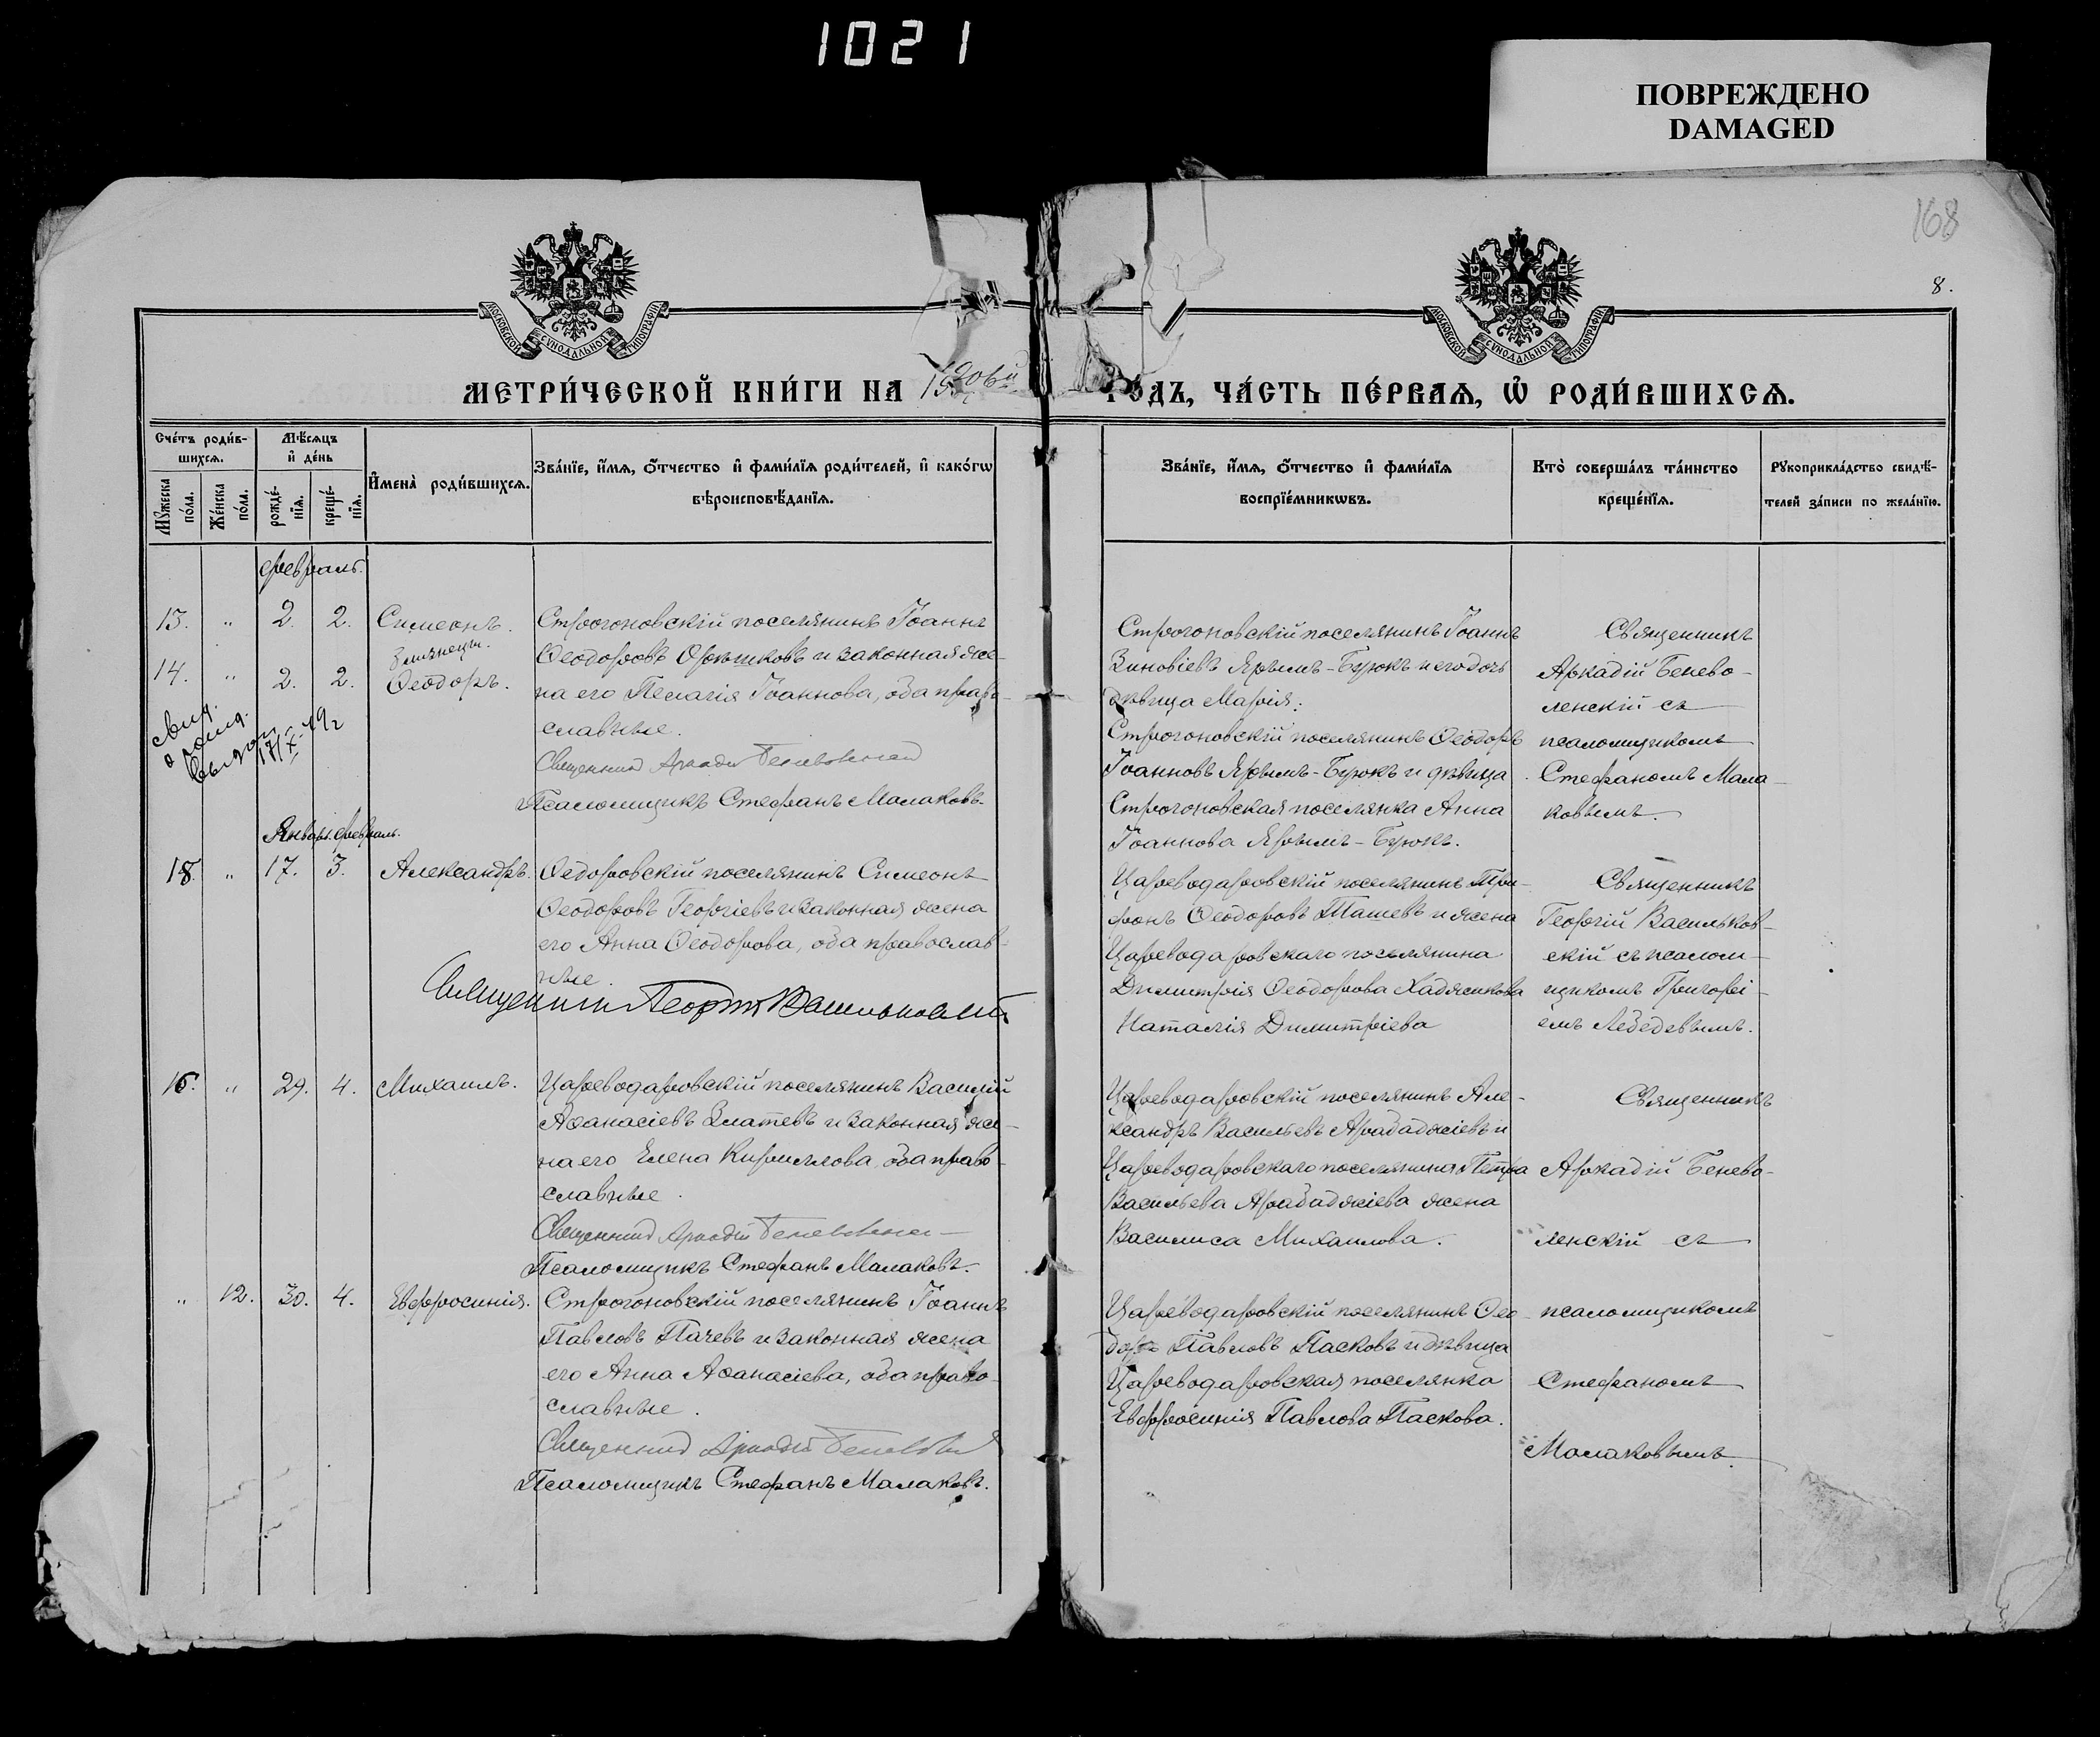 1021
ПОВРЕЖДЕНО
DAMAGED
168
8.
МОСКОВСКОЙ СѴНОДАЛЬНОЙ ТИПОГРАФІИ
МОСКОВСКОЙ СѴНОДАЛЬНОЙ ТИПОГРАФІИ
МЕТРИ́ЧЕСКОЙ КНИ́ГИ НА
ГО́ДЪ, ЧА́СТЬ ПЕ́РВАѦ, Ѡ҆ РОДИ́ВШИХСѦ.
Сче́тъ роди́в-
шихсѧ.
Мѣ́сѧцъ
и҆ де́нь
Мꙋ́жеска
по́ла.
Же́нска
по́ла.
рожде́-
нїѧ.
креще́-
нїѧ.
И҆мена̀ роди́вшихсѧ.
Зва́нїе, и҆́мѧ, ѻ҆́тчество и҆ фами́лїѧ роди́телей, и҆ како́гѡ
вѣроисповѣ́данїѧ.
Зва́нїе, и҆́мѧ, ѻ҆́тчество и҆ фами́лїѧ
воспрїе́мникѡвъ.
Кто̀ соверша́лъ та́инство
креще́нїѧ.
Рꙋкоприкла́дство свидѣ́-
телей за́писи по жела́нїю.
февраль.
13. " 2. 2. Симеонъ.
близнецы.
14. " 2. 2. Ѳеодоръ.
Строгоновскій поселянинъ Іоаннъ
Ѳеодоровъ Орѣшковъ и законная же-
на его Пелагія Іоаннова, оба право-
славные.
Священник Аркадій Беневоленский
Псаломщикъ Стефанъ Малаковъ.
Строгоновскій поселянинъ Іоаннъ
Зиновіевъ Ярымъ-Бурюкъ и его дочь
дѣвица Марія.
Строгоновскій поселянинъ Ѳеодоръ
Іоанновъ Ярымъ-Бурюкъ и дѣвица
Строгоновская поселянка Анна
Іоаннова Ярымъ-Бурюкъ.
Священникъ
Аркадій Бенево-
ленскій съ
псаломщикомъ
Стефаномъ Мала-
ковымъ.
свид.
о рожд.
выдан
17/X
Январь. февраль.
15. " 17. 3. Александръ.
Ѳедоровскій поселянинъ Симеонъ
Ѳеодоровъ Георгіевъ и законная жена
его Анна Ѳеодорова, оба православ-
ные.
Священник Георгій Васильковскій
Цареводаровскій поселянинъ Три-
фонъ Ѳеодоровъ Ташевъ и жена
Цареводаровскаго поселянина
Димитрія Ѳеодорова Хаджикова
Наталія Димитріева
Священникъ
Георгій Васильков-
скій съ псалом-
щикомъ Григорі-
емъ Лебедевымъ.
16. " 29. 4. Михаилъ.
Цареводаровскій поселянинъ Василій
Аѳанасіевъ Златевъ и законная же-
на его Елена Кириллова, оба право-
славные.
Священник Аркадій Беневоленский
Псаломщикъ Стефанъ Малаковъ.
Цареводаровскій поселянинъ Але-
ксандръ Васильевъ Арабаджіевъ и
Цареводаровскаго поселянина Петра
Васильева Арабаджіева жена
Василиса Михаилова.
Священникъ
Аркадій Бенево-
ленскій съ
" 12. 30. 4. Евфросинія.
Строгоновскій поселянинъ Іоаннъ
Павловъ Пачевъ и законная жена
его Анна Аѳанасіева, оба право-
славные.
Священник Аркадій Беневоленский
Псаломщикъ Стефанъ Малаковъ.
Цареводаровскій поселянинъ Ѳео-
доръ Павловъ Пасковъ и дѣвица
Цареводаровская поселянка
Евфросинія Павлова Паскова.
псаломщикомъ
Стефаномъ
Малаковымъ.